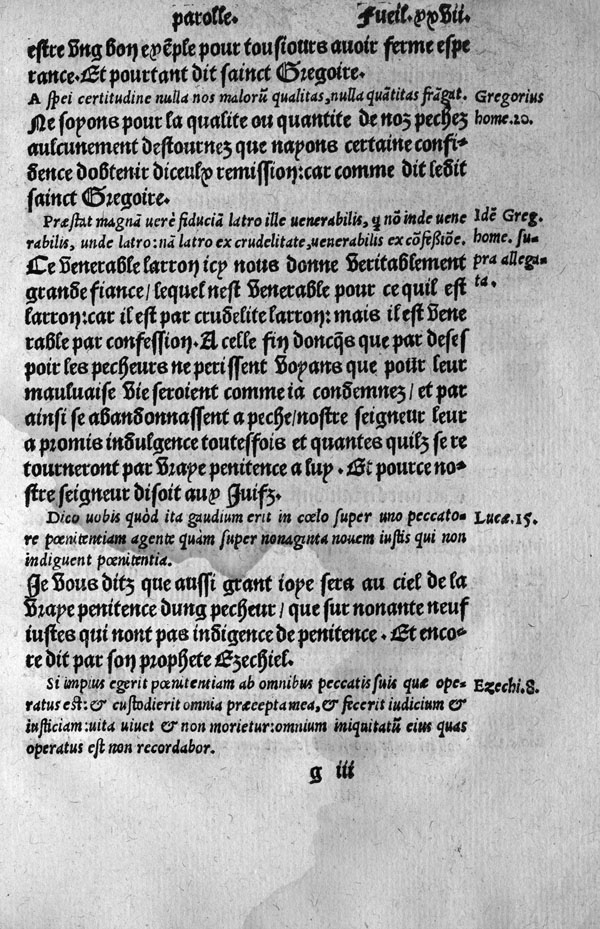 parolle. Fueil.xxvii.
estre vng bon exẽple pour tousiours auoir ferme espe
rance. Et pourtant dit sainct Gregoire.
A spei certitudine nulla nos maloru̅ qualitas, nulla quãtitas frãgat. Gregorius
Ne soyons pour la qualite ou quantite de noz pechez home.20.
aulcunement destournez que nayons certaine confi-
dence dobtenir diceulx remission: car comme dit ledit
sainct Gregoire.
Præstat magnã uerè fiduciã latro ille uenerabilis, ꝗ nõ inde uene Idẽ Greg.
rabilis, unde latro: nã latro ex crudelitate, uenerabilis ex cõfeßiõe. home. su-
Ce venerable larron icy nous donne veritablement pra allega-
grande fiance/ lequel nest venerable pour ce quil est ta.
larron: car il est par crudelite larron: mais il est vene
rable par confession. A celle fin doncq̃s que par deses
poir les pecheurs ne perissent voyans que pour leur
mauluaise vie seroient comme ia condemnez/ et par
ainsi se abandonnassent a peche/ nostre seigneur leur
a promis indulgence toutesfois et quantes quilz se re
tourneront par vraye penitence a luy. Et pource no-
stre seigneur disoit aux Juifz.
Dico uobis quòd ita gaudium erit in cœlo super uno peccato- Lucæ.15.
re pœnitentiam agente quàm super nonaginta nouem iustis qui non
indiguent pœnitentia.
Je vous ditz que aussi grant ioye sera au ciel de la
vraye penitence dung pecheur/ que sur nonante neuf
iustes qui nont pas indigence de penitence. Et enco-
re dit par son prophete Ezechiel.
Si impius egerit pœnitentiam ab omnibus peccatis suis quæ ope- Ezechi.8.
ratus est: & custodierit omnia præcepta mea, & fecerit iudicium &
iusticiam: uita uiuet & non morietur: omnium iniquitatu̅ eius quas
operatus est non recordabor.
g iii